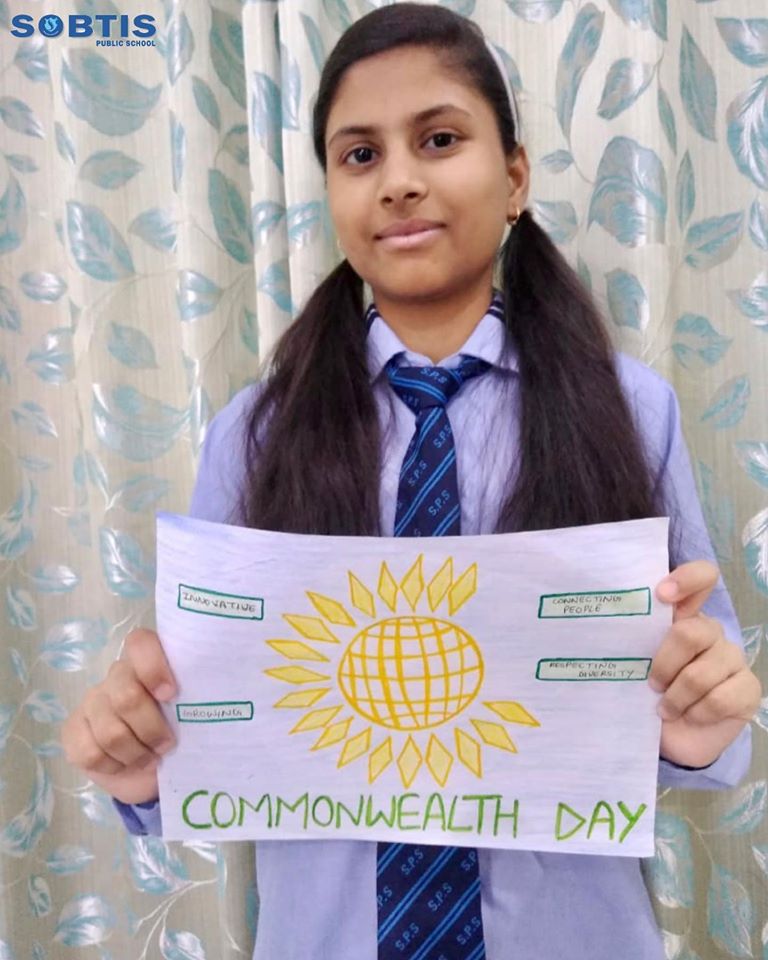 SOBTIS
PUBLIC SCHOOL
S.P.S
S.P.S
S.P.S
INNOVATIVE
CONNECTING
PEOPLE
RESPECTING
DIVERSITY
GROWING
COMMONWEALTH DAY
S.P.S
S.P.S
S.P.S